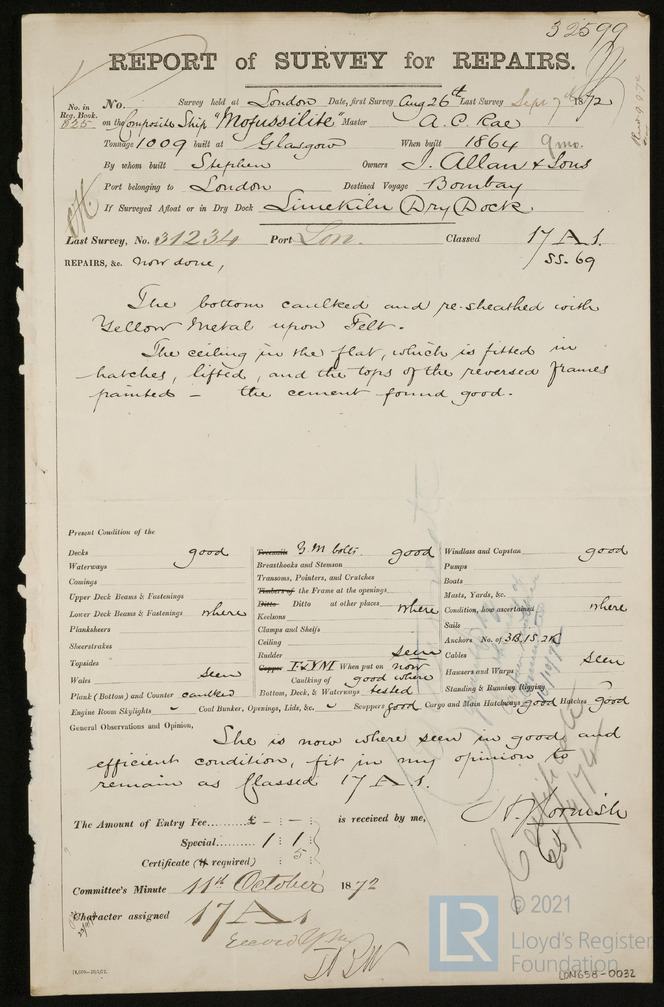 32599
REPORT of SURVEY for REPAIRS.
No. in Reg. Book. 825
No. Survey held at London Date, first Survey Aug 26th Last Survey Sept 7th 1872
on the Composite Ship "Mofussilite" Master A. C. Rae
Tonnage 1009 built at Glasgow When built 1864 9 mo.
By whom built Stephen Owners J. Allan & Sons
Port belonging to London Destined Voyage Bombay
If Surveyed Afloat or in Dry Dock Limekiln Dry Dock
Last Survey, No. 31234 Port Lon. Classed 17 A 1.
REPAIRS, &c. now done, SS. 69
The bottom caulked and re-sheathed with
Yellow Metal upon Felt.
The ceiling in the flat, which is fitted in
hatches, lifted, and the tops of the reversed frames
painted – the cement found good.
Present Condition of the
Decks good
Waterways
Comings
Upper Deck Beams & Fastenings
Lower Deck Beams & Fastenings where
Planksheers
Sheerstrakes
Topsides
Wales seen
Plank (Bottom) and Counter caulked
Treenails Y. M bolts. good
Breasthooks and Stemson
Transoms, Pointers, and Crutches
Timbers of the Frame at the openings
Ditto Ditto at other places where
Keelsons
Clamps and Shelfs
Ceiling
Rudder seen
Copper F & YM When put on now
Caulking of good where
Bottom, Deck, & Waterways tested
Windlass and Capstan good
Pumps
Boats
Masts, Yards, &c.
Condition, how ascertained where
Sails
Anchors No. of 3B, 1S, 2K
Cables
Hawsers and Warps seen
Standing & Running Rigging
Engine Room Skylights Coal Bunker, Openings, Lids, &c. Scuppers good Cargo and Main Hatchways good Hatches good
General Observations and Opinion,
She is now where seen in good and
efficient condition, fit in my opinion to
remain as Classed 17 A 1.
The Amount of Entry Fee £ - : - is received by me,
Special 1 : 1
Certificate (if required) : 5
Committee's Minute 11th October 1872
Character assigned 17 A 1
© 2021
LR
Lloyd's Register
Foundation
LON658-0032